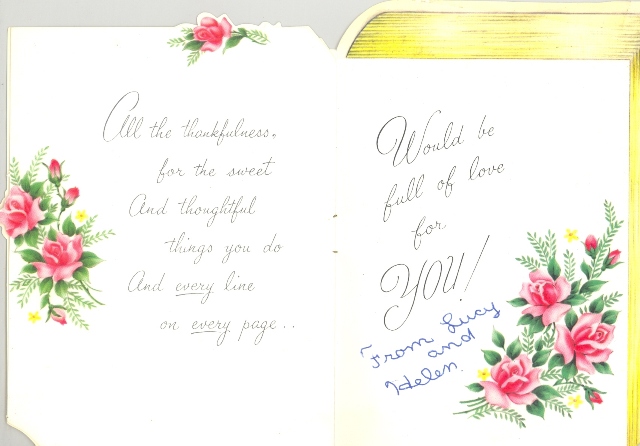 All the thankfulness.
for the sweet
And thoughtful
things you do
And every line
on every page..
Would be
full of love
for
YOU!
From Lucy
and
Helen.